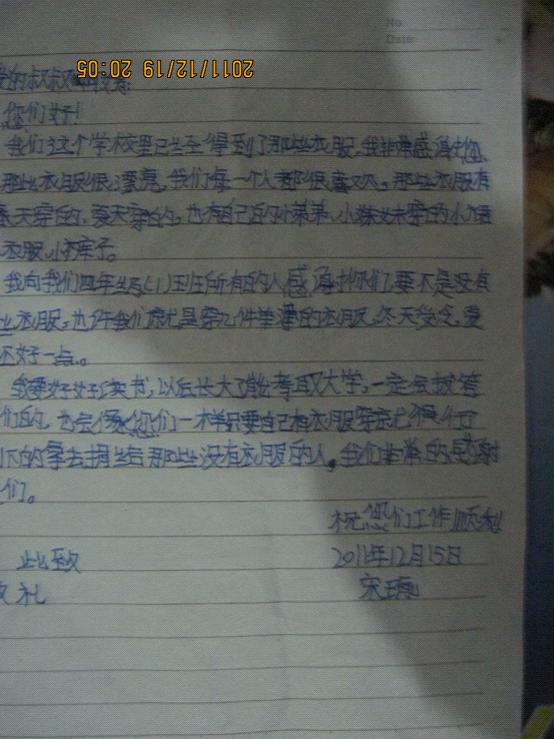 No
Date:
2011/12/19 20:05
的叔叔
您们好!
我们这个学校里已经得到了那些衣服,我非常感谢您,
那些衣服很漂亮,我们每一个人都很喜欢。那些衣服有
天穿的,夏天穿的,也有自己的小弟弟、小妹妹穿的小
衣服、小裤子。
我向我们四年级(1)班所有的人感谢你们,要不是没有
衣服,也许我们就是穿几件单薄的衣服,冬天受冷,夏
还好一点。
我要好好读书,以后长大了能考取大学,一定会报答
们的,也会像您们一样只要自己有衣服穿就很行了
的拿去捐给那些没有衣服的人。我们非常的感谢
们。
祝您们工作顺利
此致
2011年12月15日
礼
宋